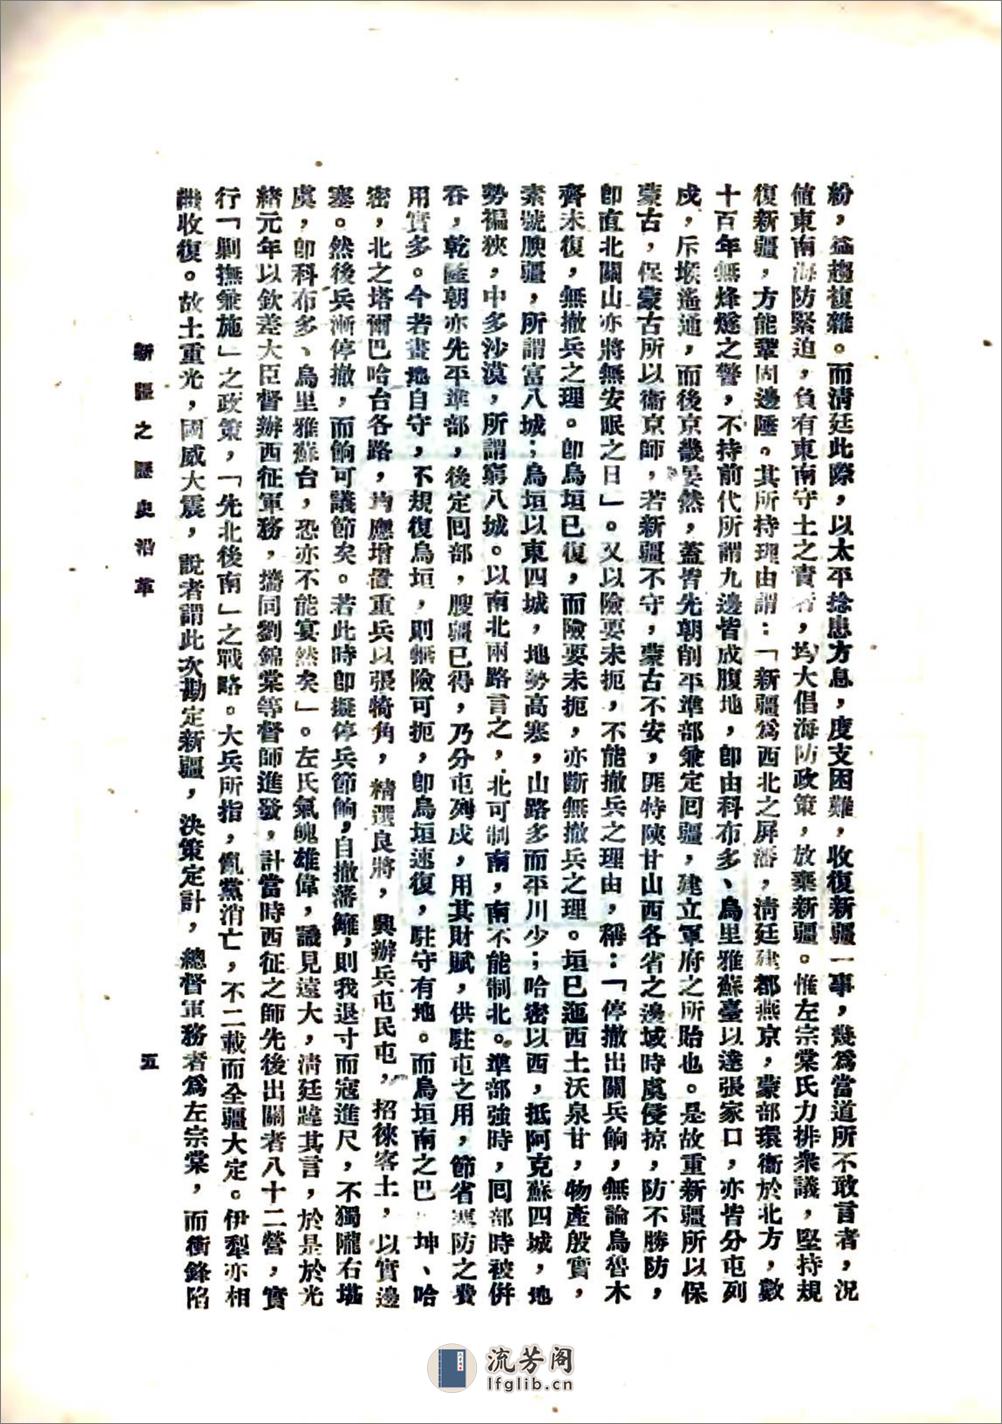 紛，益趨複雜。而清廷此際，以太平捻患方息，度支困難，收復新疆一事，幾為當道所不敢言者，況
值東南海防緊迫，負有東南守土之責者，均大倡海防政策，放棄新疆。惟左宗棠氏力排衆議，堅持規
復新疆，方能鞏固邊陲。其所持理由謂：「新疆為西北之屏藩，清廷建都燕京，蒙部環衞於北方，數
十百年無烽燧之警，不持前代所謂九邊皆成腹地，卽由科布多、烏里雅蘇臺以達張家口，亦皆分屯列
戍，斥堠遙通，而後京畿晏然，蓋皆先朝削平準部兼定回疆，建立軍府之所貽也。是故重新疆所以保
蒙古，保蒙古所以衞京師，若新疆不守，蒙古不安，匪特陝甘山西各省之邊域時虞侵掠，防不勝防，
卽直北關山亦將無安眠之日」。又以險要未扼，不能撤兵之理由，稱：「停撤出關兵餉，無論烏魯木
齊未復，無撤兵之理。卽烏垣已復，而險要未扼，亦斷無撤兵之理。垣已迤西土沃泉甘，物產殷實，
素號腴疆，所謂富八城；烏垣以東四城，地勢高寒，山路多而平川少；哈密以西，抵阿克蘇四城，地
勢褊狹，中多沙漠，所謂窮八城。以南北兩路言之，北可制南，南不能制北。準部強時，回部時被併
吞，乾隆朝亦先平準部，後定回部，腴疆已得，乃分屯列戍，用其財賦，供駐屯之用，節省塞防之費
用實多。今若畫地自守，不規復烏垣，則無險可扼，卽烏垣速復，駐守有地。而烏垣南之巴 坤、哈
密，北之塔爾巴哈台各路，均應增置重兵以張犄角，精選良將，興辦兵屯民屯，招徠客土，以實邊
塞。然後兵漸停撤，而餉可議節矣。若此時卽擬停兵節餉，自撤藩籬，則我退寸而寇進尺，不獨隴右堪
虞，卽科布多、烏里雅蘇台，恐亦不能宴然矣」。左氏氣魄雄偉，議見遠大，清廷韙其言，於是於光
緒元年以欽差大臣督辦西征軍務，擕同劉錦棠等督師進發，計當時西征之師先後出關者八十二營，實
行「剿撫兼施」之政策，「先北後南」之戰略。大兵所指，亂黨消亡，不二載而全疆大定。伊犁亦相
繼收復。故土重光，國威大震，說者謂此次勘定新疆，決策定計，總督軍務者為左宗棠，而衝鋒陷
新疆之歷史沿革
五
流芳阁
lfglib.cn